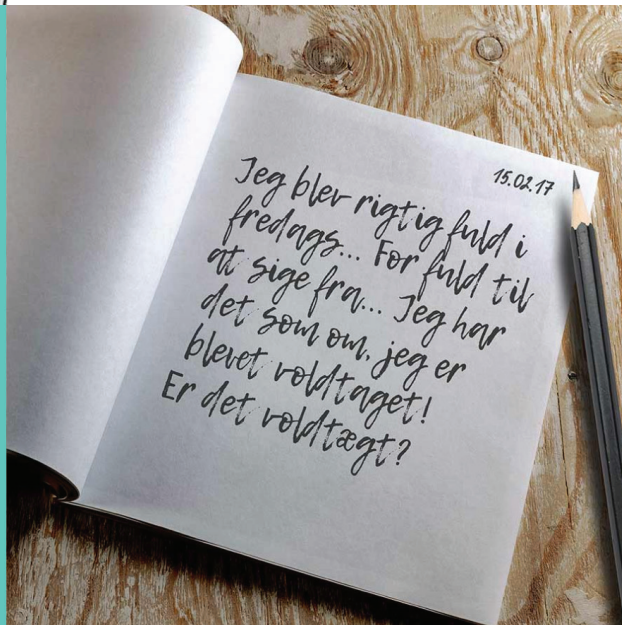 15.02.17
Jeg blev rigtig fuld i
fredags... For fuld til
at sige fra... Jeg har
det som om, jeg er
blevet voldtaget!
Er det voldtægt?